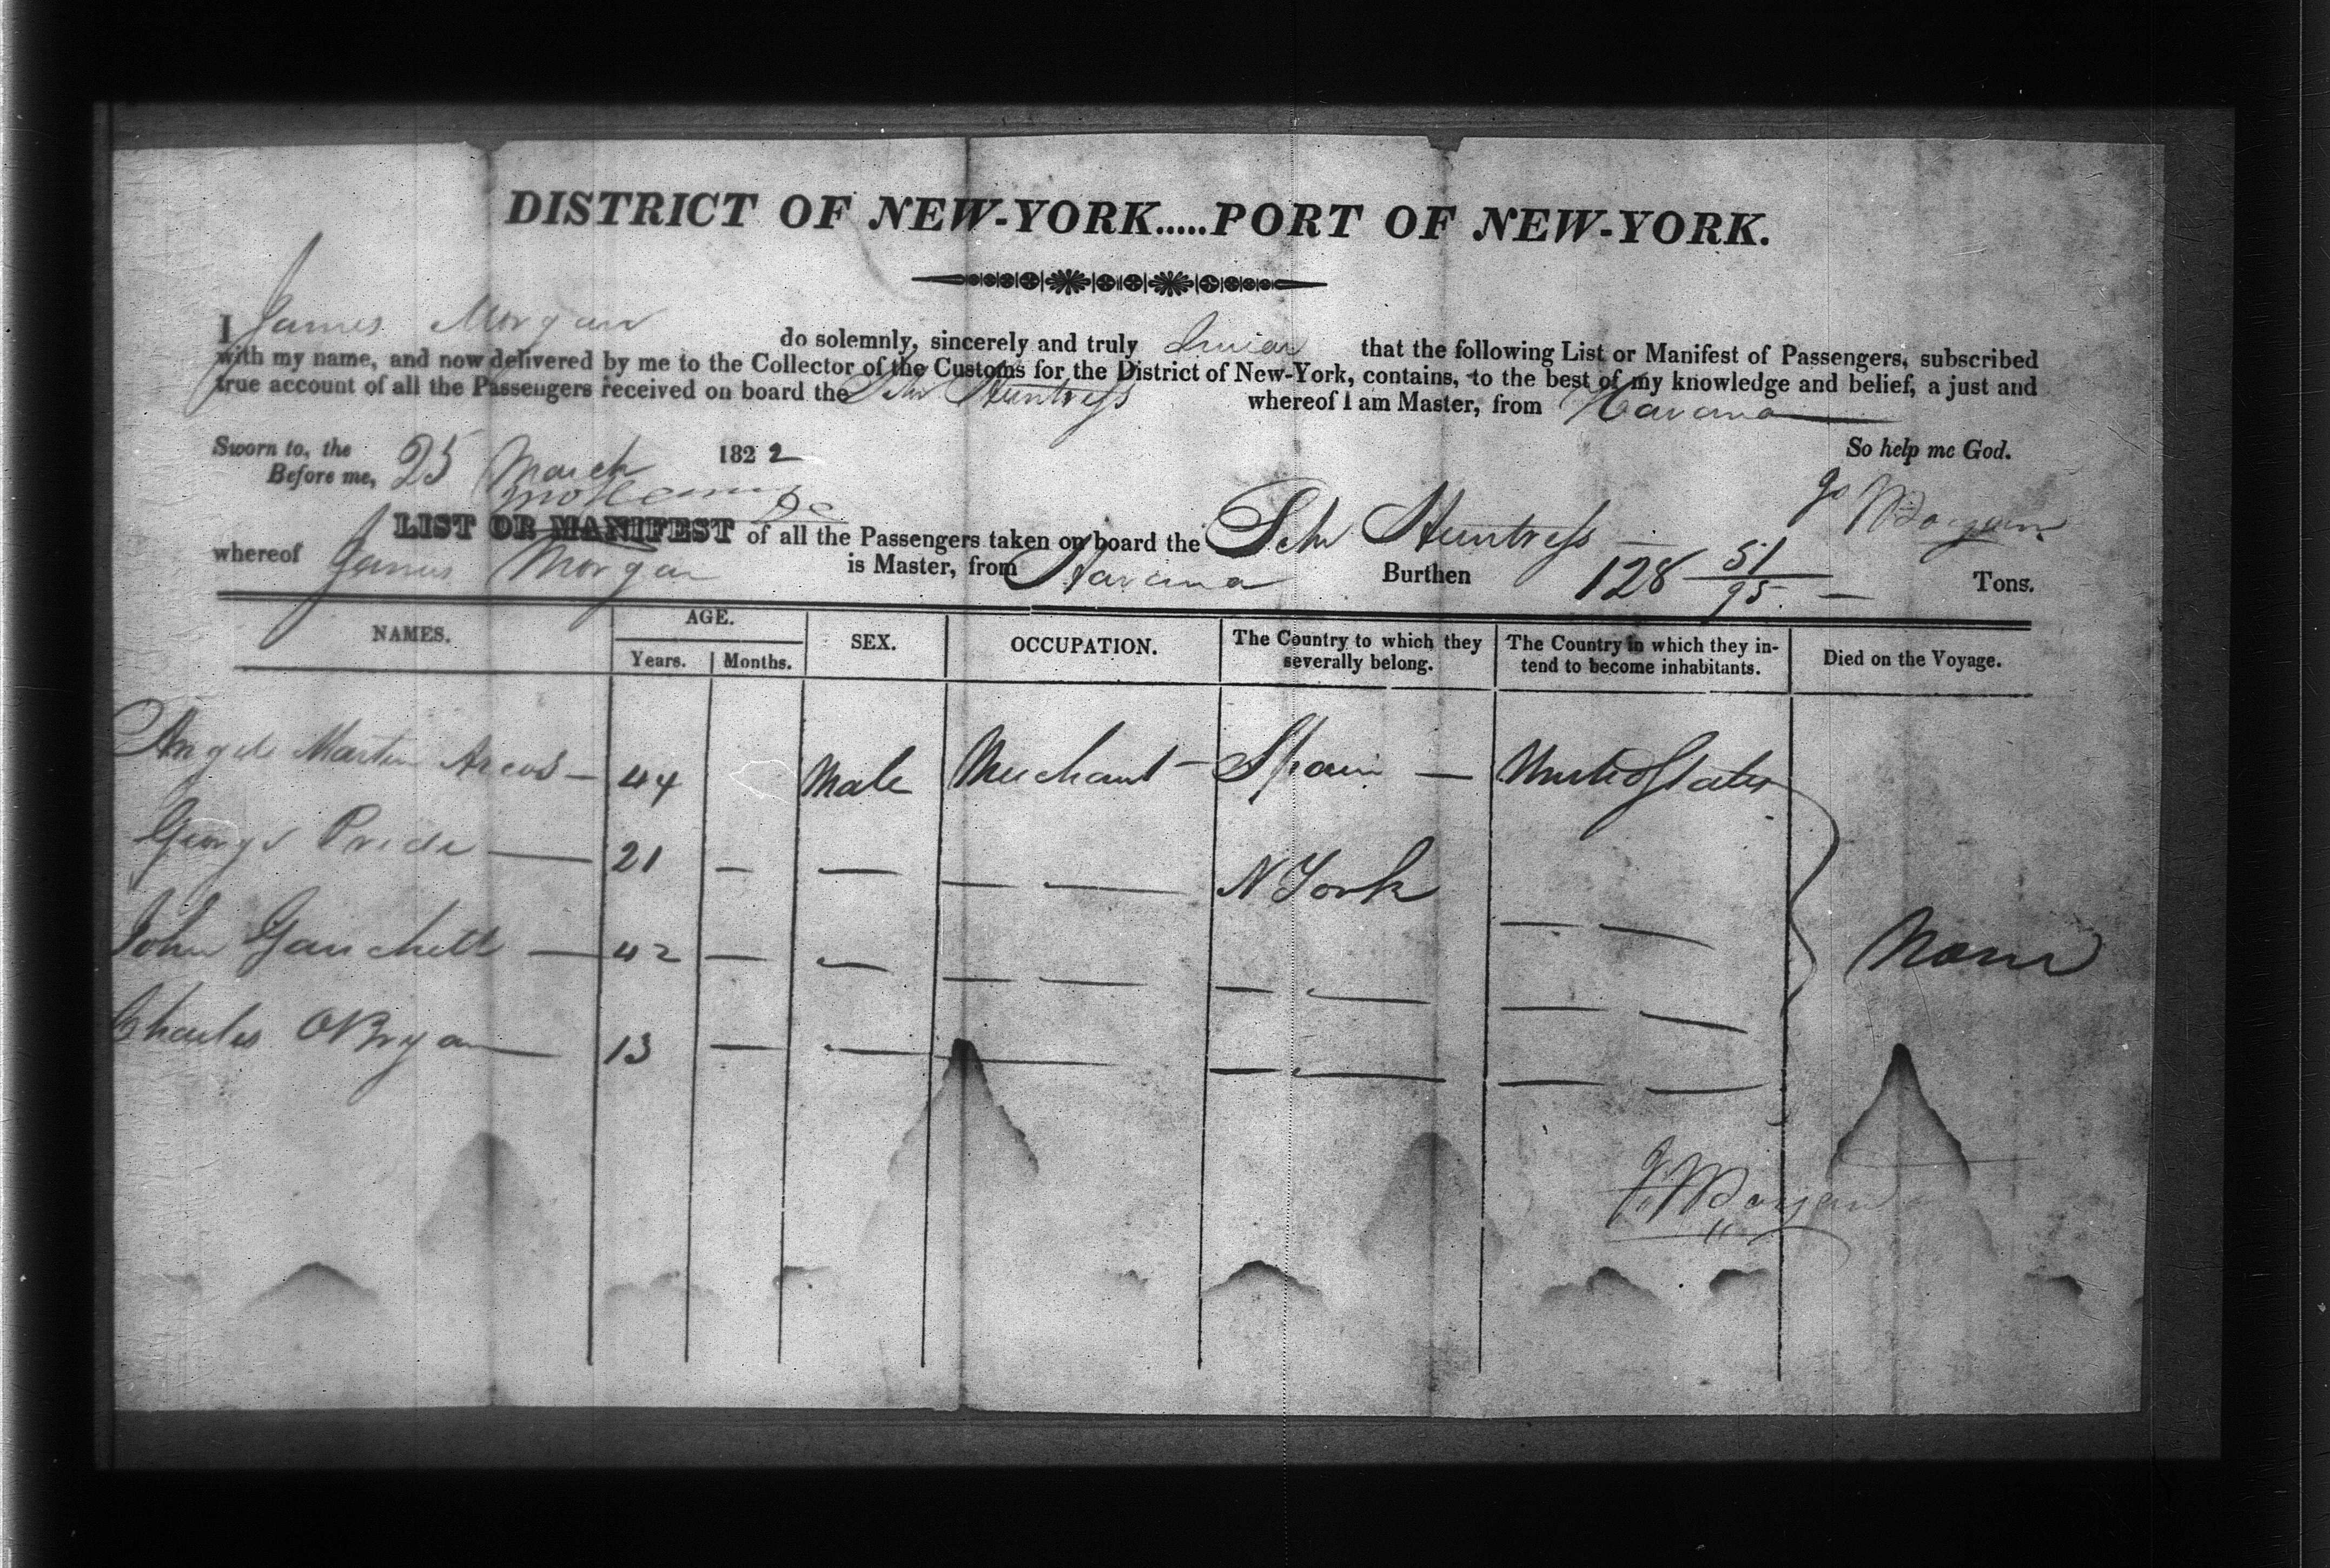 DISTRICT OF NEW-YORK.....PORT OF NEW-YORK.
I James Morgan do solemnly, sincerely and truly Swear that the following List or Manifest of Passengers, subscribed
with my name, and now delivered by me to the Collector of the Customs for the District of New-York, contains, to the best of my knowledge and belief, a just and
true account of all the Passengers received on board the Schr Huntress whereof I am Master, from Havana
So help me God.
Sworn to, the 25 March 1822
Before me,
Js Morgan
LIST OR MANIFEST of all the Passengers taken on board the Schr Huntress
whereof James Morgan is Master, from Havana Burthen 128 51/95 Tons.
NAMES. AGE. SEX. OCCUPATION. The Country to which they severally belong. The Country in which they intend to become inhabitants. Died on the Voyage.
Years. Months.
Angel Martin Arcos — 44 Male Merchant — Spain — United States
George Pride — 21 — — — — N York — —
John — 42 — — — — — — — — None
Charles OBryan — 13 — — — — — — — —
Js Morgan